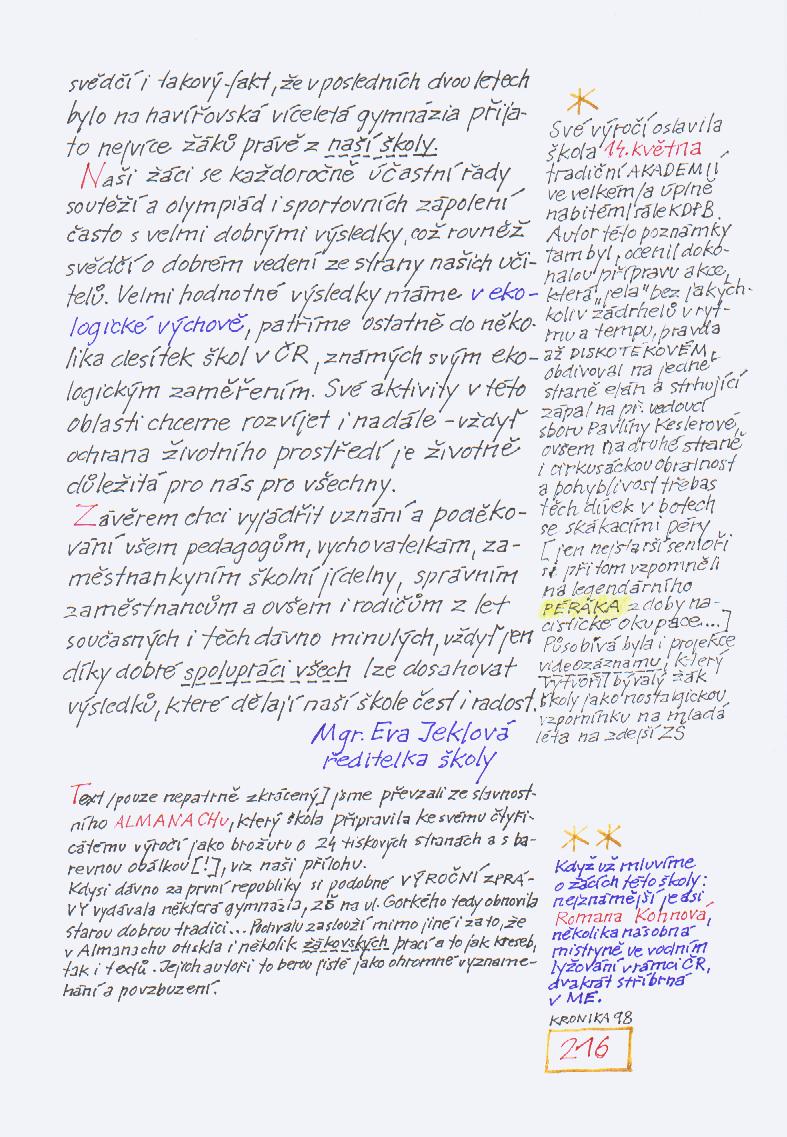 svědčí i takový fakt, že v posledních dvou letech
bylo na havířovská víceletá gymnázia přija-
to nejvíce žáků právě z naší školy.
Naši žáci se každoročně účastní řady
soutěží a olympiád i sportovních zápolení
často s velmi dobrými výsledky, což rovněž
svědčí o dobrém vedení ze strany našich uči-
telů. Velmi hodnotné výsledky máme v eko-
logické výchově, patříme ostatně do něko-
lika desítek škol v ČR, známých svým eko-
logickým zaměřením. Své aktivity v této
oblasti chceme rozvíjet i nadále - vždyť
ochrana životního prostředí je životně
důležitá pro nás pro všechny.
Závěrem chci vyjádřit uznání a poděko-
vání všem pedagogům, vychovatelkám, za-
městnankyním školní jídelny, správním
zaměstnancům a ovšem i rodičům z let
současných i těch dávno minulých, vždyť jen
díky dobré spolupráci všech lze dosahovat
výsledků, které dělají naší škole čest i radost.
Mgr. Eva Jeklová
ředitelka školy
Text /pouze nepatrně zkrácený] jsme převzali ze slavnost-
ního ALMANACHu, který škola připravila ke svému čtyři-
cátému výročí jako brožuru o 24 tiskových stranách a s ba-
revnou obálkou [!], viz naši přílohu.
Kdysi dávno za první republiky si podobné VÝROČNÍ ZPRÁ-
VY vydávala některá gymnázia, ZŠ na ul. Gorkého tedy obnovila
starou dobrou tradici... Pochvalu zaslouží mimo jiné i za to, že
v Almanachu otiskla i několik žákovských prací a to jak kreseb,
tak i textů. Jejich autoři to berou jistě jako ohromné vyzname-
nání a povzbuzení.
*
Své výročí oslavila
škola 14. května
tradiční AKADEMIÍ
ve velkém /a úplně
nabitém/ sále KDPB.
Autor této poznámky
tam byl, ocenil doko-
nalou přípravu akce,
která „jela" bez jakých-
koliv zádrhelů v ryt-
mu a tempu, pravda
až DISKOTÉKOVÉM,
obdivoval na jedné
straně elán a strhující
zápal na př. vedoucí
sboru Pavlíny Keslerové,
ovšem na druhé straně
i cirkusáckou obratnost
a pohyblivost třebas
těch dívek v botech
se skákacími péry
[jen nejstarší senioři
si při tom vzpomněli
na legendárního
PÉRÁKA z doby na-
cistické okupace...]
Působivá byla i projekce
videozáznamu, který
vytvořil bývalý žák
školy jako nostalgickou
vzpomínku na mladá
léta na zdejší ZŠ
* *
Když už mluvíme
o žácích této školy:
nejznámější je asi
Romana Kohnová,
několikanásobná
mistryně ve vodním
lyžování v rámci ČR,
dvakrát stříbrná
v ME.
KRONIKA 98
216